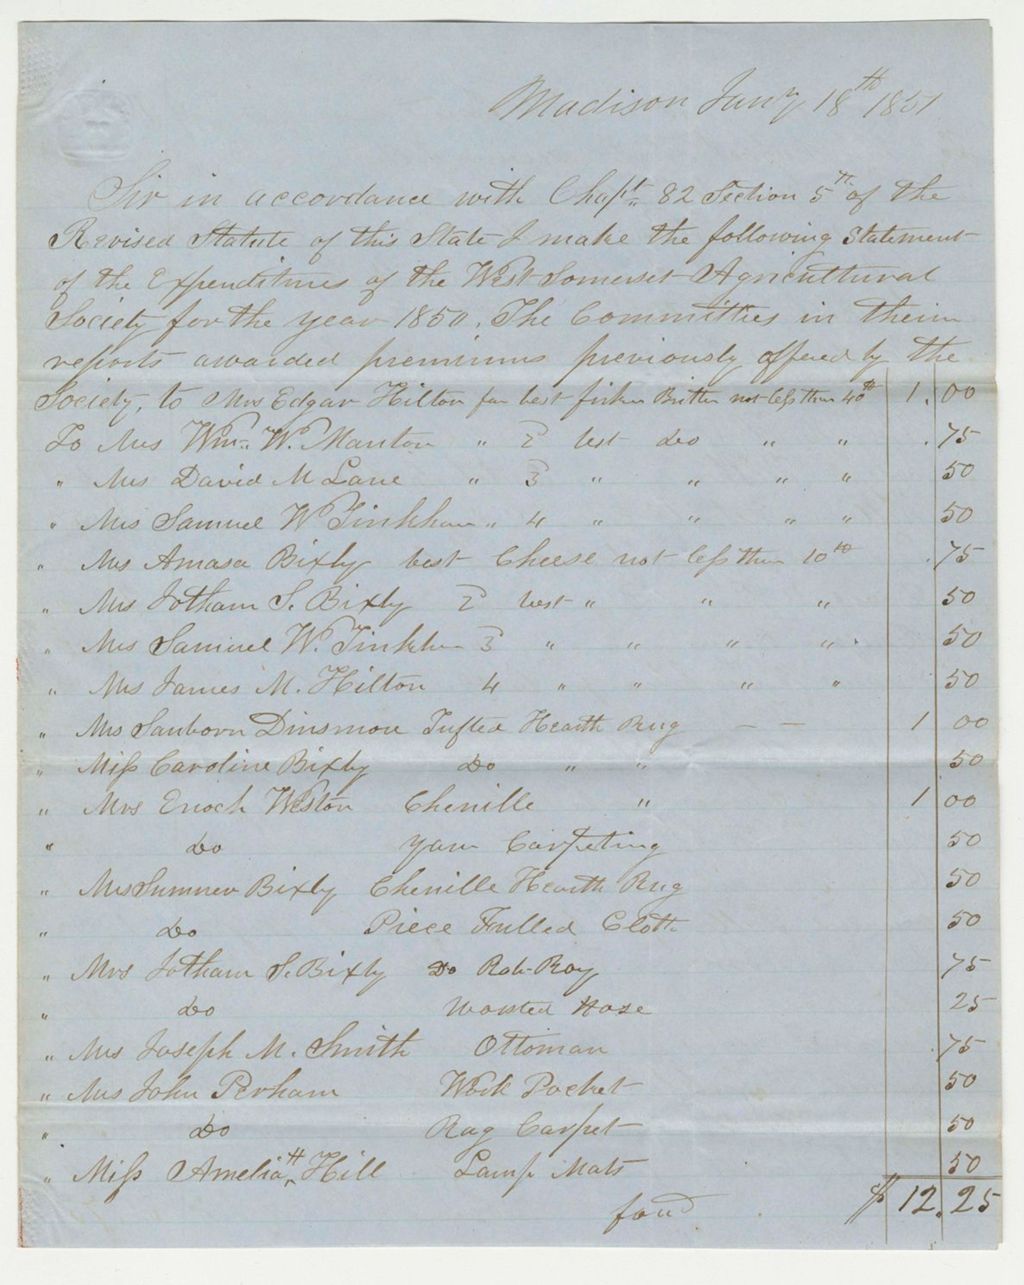 Madison Jany 18th 1851
Sir in accordance with Chapt. 82 Section 5th of the
Revised Statute of this State I make the following Statement
of the Expenditures of the West Somerset Agricultural
Society for the year 1850. The Committies in their
reports awarded premiums previously offered by the
Society, to Mrs Edgar Hilton for best firkin Butter not less than 40 lb 1.00
To Mrs Wm. W. Manton " 2 best do " " .75
" Mrs David M Lane " 3 " " " " 50
" Mrs Samuel W Tinkham " 4 " " " " 50
" Mrs Amasa Bixby best Cheese not less than 10 lb .75
" Mrs Jotham S. Bixby 2 best " " " 50
" Mrs Samuel W. Tinkham 3 " " " " 50
" Mrs James M. Hilton 4 " " " " 50
" Mrs Sanborn Dinsmore Tufted Hearth Rug — — 1 00
" Miss Caroline Bixby Do " " 50
" Mrs Enoch Weston Chenille " 1 00
" Do Yarn Carpeting 50
" Mrs Sumner Bixby Chenille Hearth Rug 50
" Do Piece Fulled Cloth 50
" Mrs Jotham S. Bixby Do Rob-Roy 75
" Do Worsted Hose 25
" Mrs Joseph M. Smith Ottoman .75
" Mrs John Perham Work Pocket 50
" Do Rag Carpet 50
" Miss Amelia H Hill Lamp Mats 50
ford $12.25